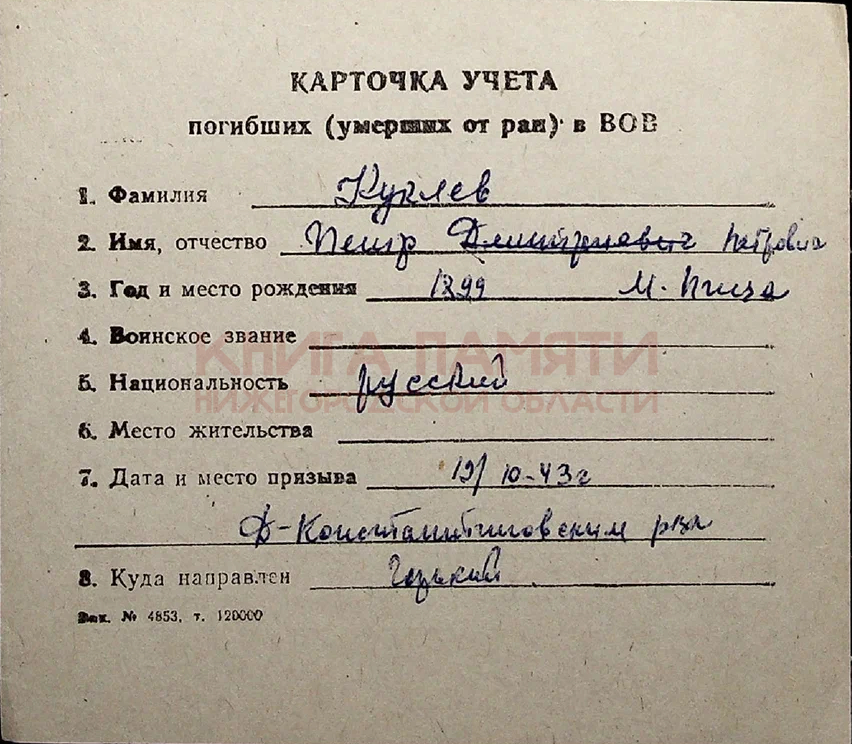 КАРТОЧКА УЧЕТА
погибших (умерших от ран) в ВОВ
1. Фамилия Куклев
2. Имя, отчество Петр Дмитриевич Петрович
3. Год и место рождения 1899 М. Пица
4. Воинское звание
КНИГА ПАМЯТИ
5. Национальность русский
НИЖЕГОРОДСКОЙ ОБЛАСТИ
6. Место жительства
7. Дата и место призыва 19/10-43г
Д-Константиновским рвк
8. Куда направлен Горький
Зак. № 4853, т. 120000